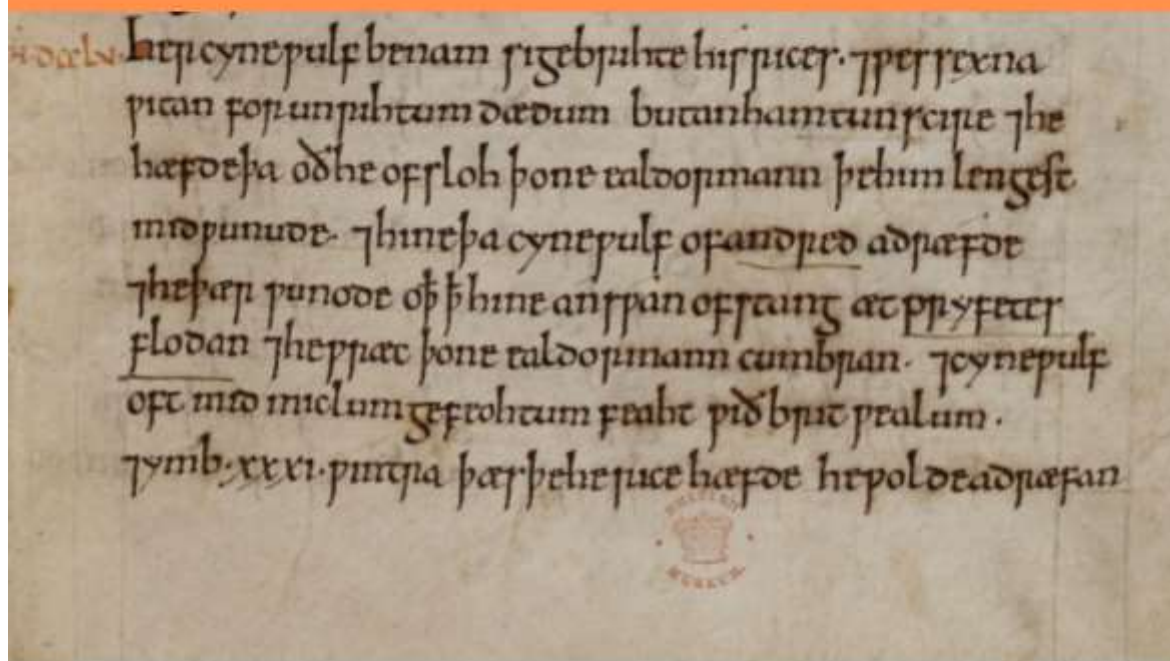 dcclv· Her cyneƿulf benam sigebrihte hisrices· ⁊ƿessexna
ƿitan for unrihtum dædum butanhamtunscire ⁊he
hæfdeþa oðhe ofsloh þone ealdormann þehim lengest
midƿunude· ⁊hineþa cyneƿulf ofandred adræfde
⁊heþær ƿunode oþ ꝥ hine ansƿan ofstang æt pryfetes
flodan ⁊heƿræc þone ealdormann cumbran· ⁊cyneƿulf
oft mid miclumgefeohtum feaht ƿið brut ƿealum·
⁊ymb·xxxi·ƿintra þæsþeherice hæfde heƿoldeadræfan